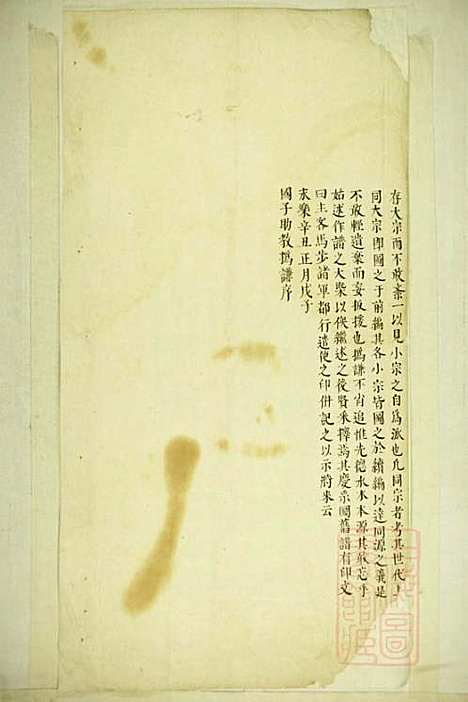 存大宗而不敢紊一以見小宗之自為派也凡同宗者考其世代上
同大宗即圖之于前編其各小宗皆圖之於續編以達同源之義是
不敢輕遺棄而妄扳援也撝謙不肖追惟先德水木本源其敢忘乎
始述作譜之大槩以俟繼述之後賢采擇焉其慶系圖舊譜有印文
曰主客馬步諸軍都行遣使之印併記之以示將来云
永樂辛丑正月戊子
國子助教撝謙序